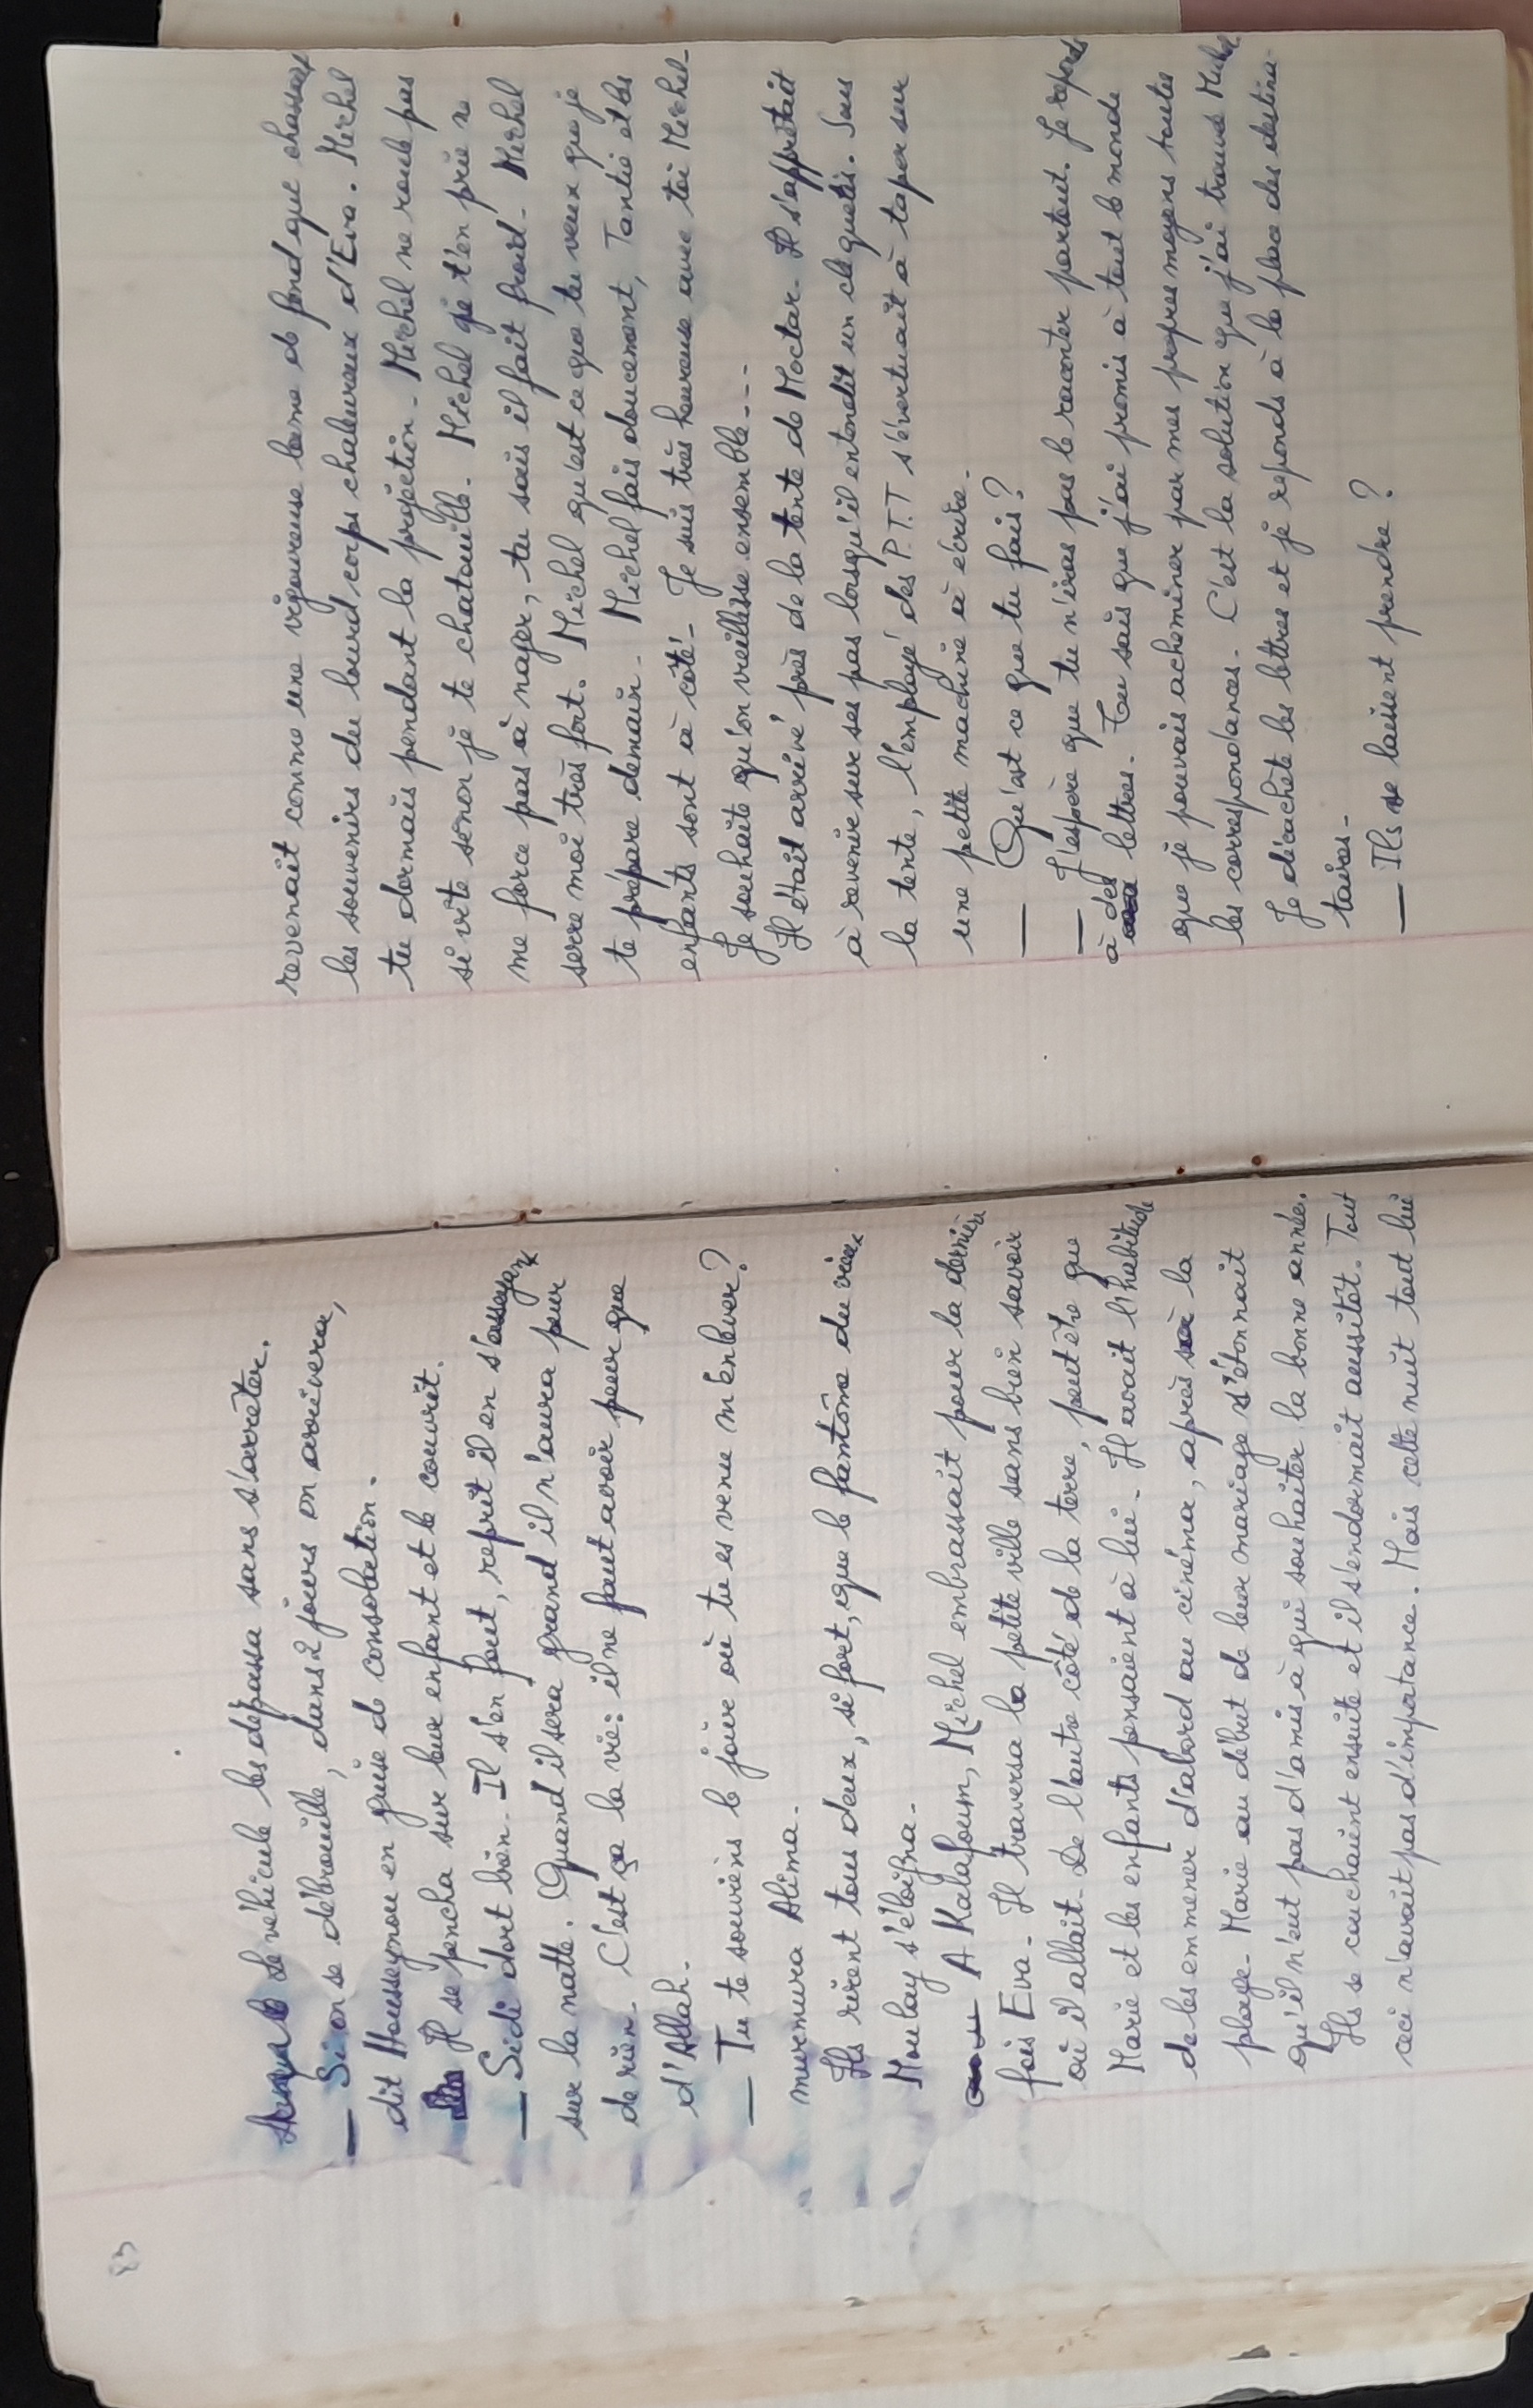 83
Le véhicule les dépassa sans s'arrêter.
— Si on se débrouille, dans 2 jours on arrivera,
dit Housseynou en guise de consolation.
Il se pencha sur leur enfant et le couvrit.
— Sidi dort bien. Il s'en fout, reprit il en s'asseyant
sur la natte. Quand il sera grand il n'aura peur
de rien. C'est ça la vie : il ne faut avoir peur que
d'Allah.
— Tu te souviens le jour où tu es venu m'enlever ?
murmura Alima.
Ils rirent tous deux, si fort, que le fantôme du vieux
Moulay s'éloigna.
A Kalafoum, Michel embrassait pour la dernière
fois Eva. Il traversa la petite ville sans bien savoir
où il allait. De l'autre côté de la terre, peut être que
Marie et les enfants pensaient à lui. Il avait l'habitude
de les emmener d'abord au cinéma, après à la
plage. Marie au début de leur mariage s'étonnait
qu'il n'eut pas d'amis à qui souhaiter la bonne année.
Ils se couchaient ensuite et il s'endormait aussitôt. Tout
ceci n'avait pas d'importance. Mais cette nuit tout lui
revenait comme une vigoureuse lame de fond que chassaient
les souvenirs du lourd corps chaleureux d'Eva. Michel
tu dormais pendant la projection. Michel ne roule pas
si vite sinon je te chatouille. Michel je t'en prie ne
me force pas à nager, tu sais il fait froid. Michel
serre moi très fort. Michel qu'est ce que tu veux que je
te prépare demain. Michel fais doucement, Tantie et les
enfants sont à côté. Je suis très heureuse avec toi Michel.
Je souhaite qu'on vieillisse ensemble...
Il était arrivé près de la tente de Moctar. Il s'apprêtait
à revenir sur ses pas lorsqu'il entendit un cliquetis. Sous
la tente, l'employé des P.T.T s'évertuait à taper sur
une petite machine à écrire.
— Qu'est ce que tu fais ?
— J'espère que tu n'iras pas le raconter partout. Je réponds
à des lettres. Tu sais que j'ai promis à tout le monde
que je pouvais acheminer par mes propres moyens toutes
les correspondances. C'est la solution que j'ai trouvé Michel
Je décachète les lettres et je réponds à la place des destina-
taires.
— Ils se laissent prendre ?